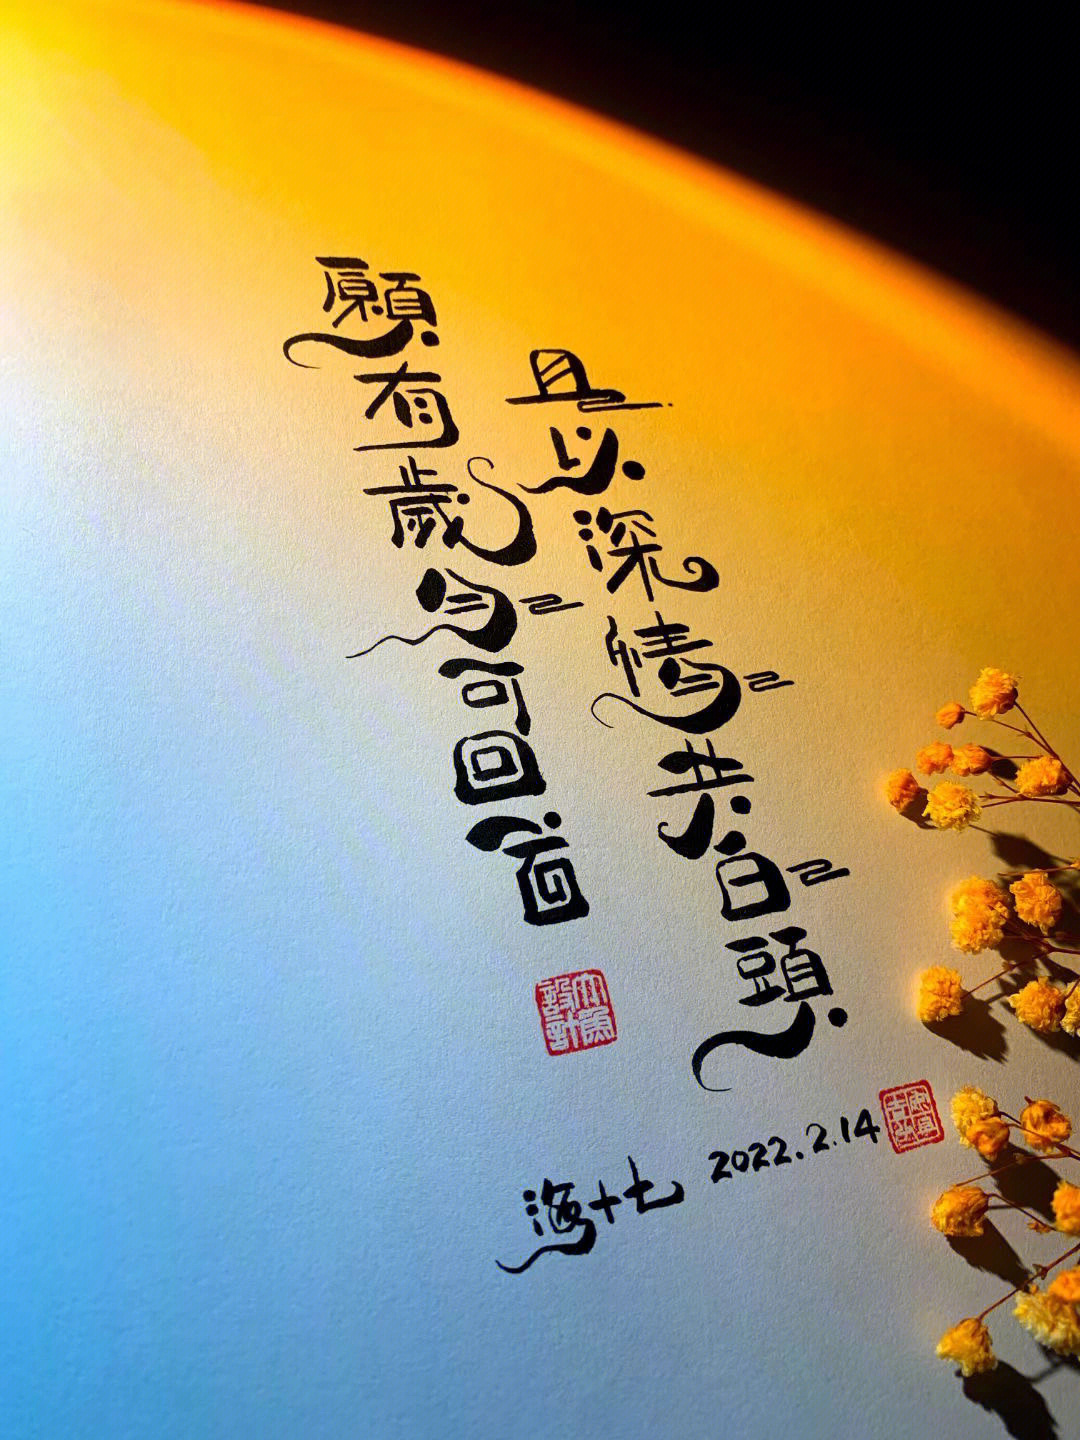 願有歲月可回首
且以深情共白頭
大魚設計
海十七 2022.2.14